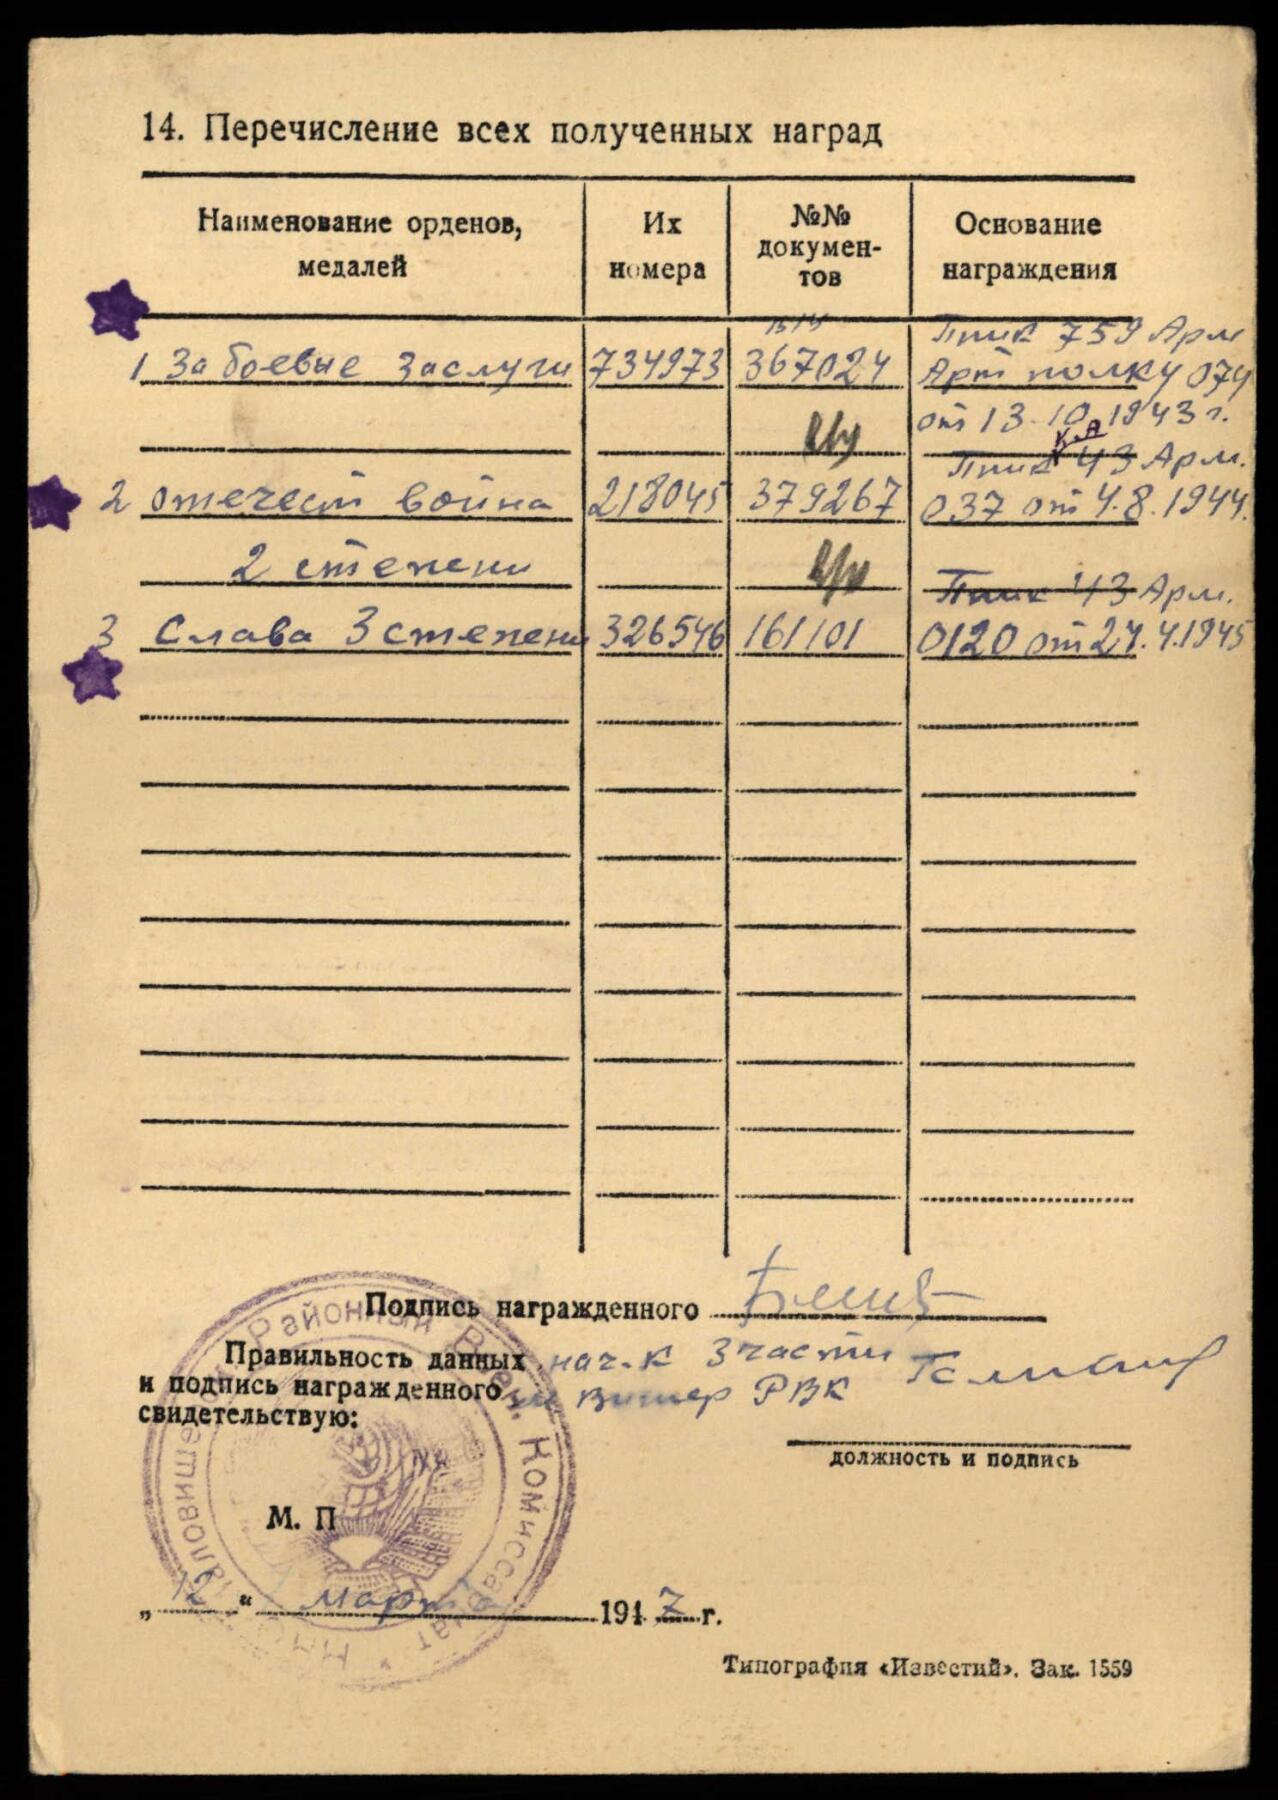 14. Перечисление всех полученных наград
Наименование орденов, медалей
Их номера
№№ документов
Основание награждения
Прик 759 Арм
1 За боевые Заслуги 734973 367024 Арт полку 074
от 13.10.1943 г.
Прик 43 Арм.
2 отечест война 218045 379267 037 от 4.8.1944.
2 степени
Прик 43 Арм.
3 Слава 3 степени 326546 161101 0120 от 24.4.1945
Подпись награжденного
Правильность данных нач.к 3 части
и подпись награжденного РВК
свидетельствую:
должность и подпись
М. П
„12“ марта 1947 г.
Районный Воен. Комиссариат
Типография «Известий». Зак. 1559